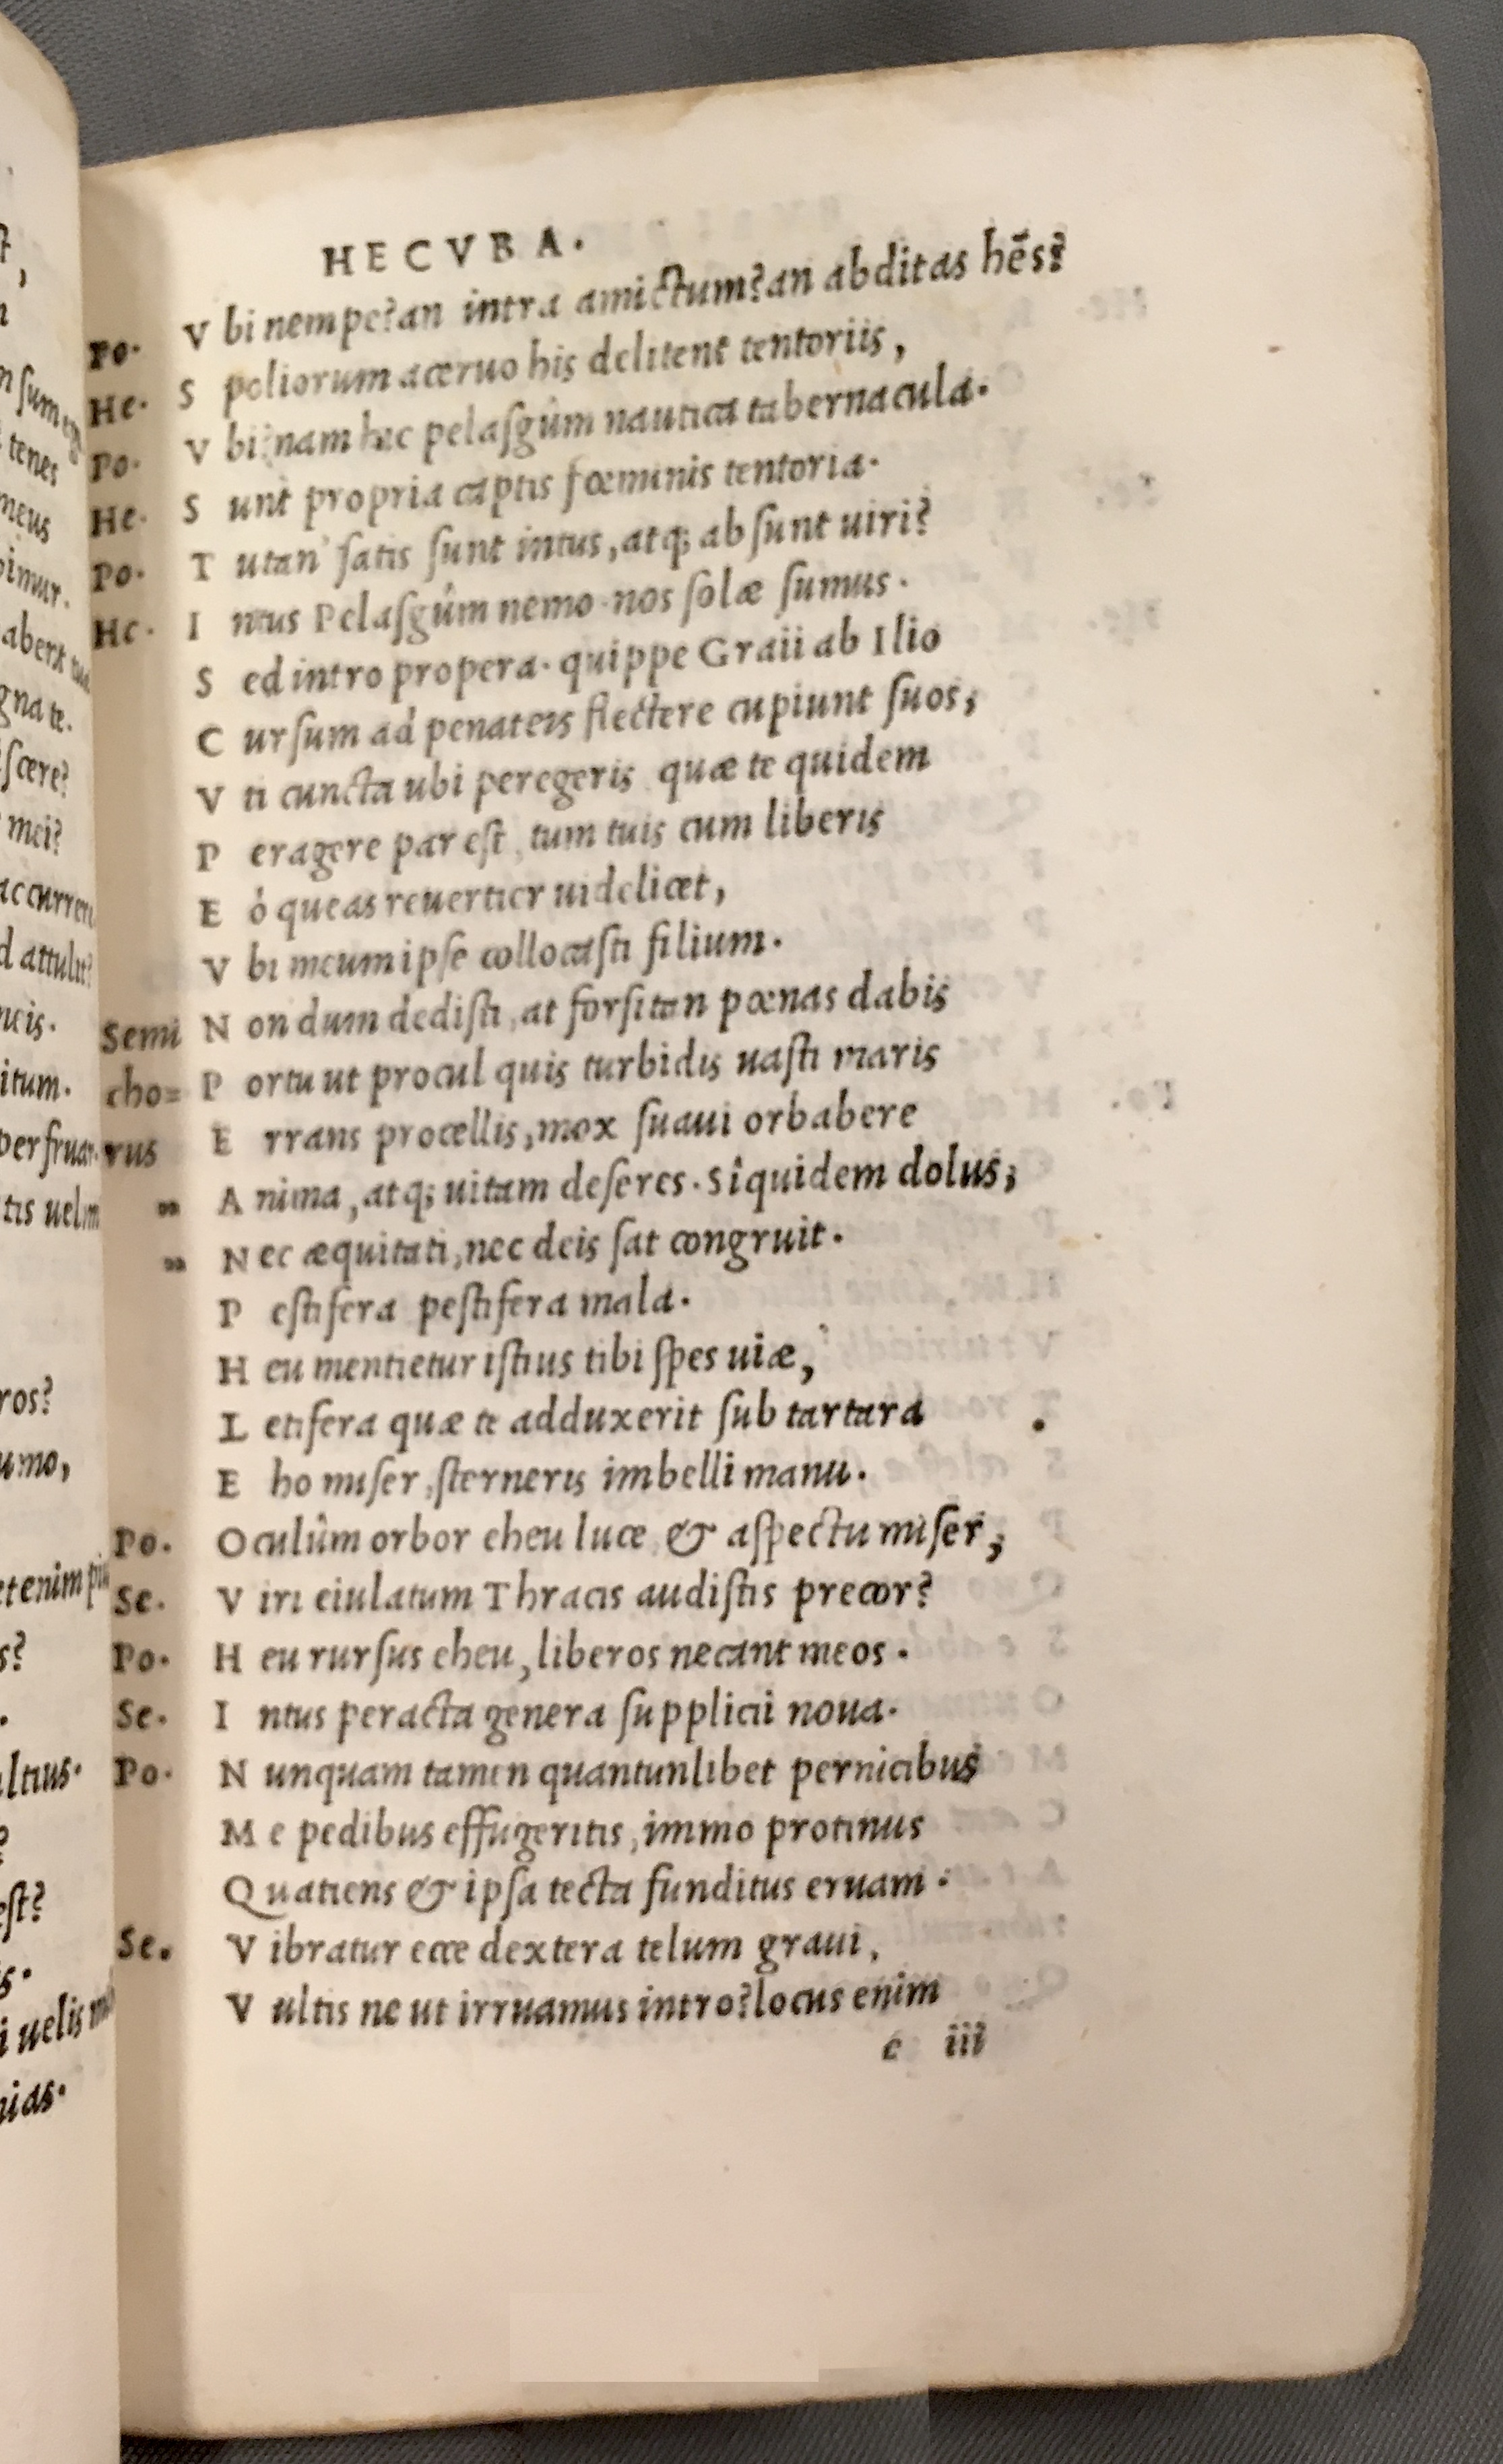 HECVBA.
Po. V bi nempe?an intra amictum?an abditas hẽs?
He. S poliorum aceruo his delitent tentoriis,
Po. V binam hæc pelasgûm nautica tabernacula.
He. S unt propria captis fœminis tentoria.
Po. T utan' satis sunt intus, atq; absunt uiri?
He. I ntus Pelasgûm nemo. nos solæ sumus.
S ed intro propera. quippe Graii ab Ilio
C ursum ad penateis flectere cupiunt suos;
V ti cuncta ubi peregeris quæ te quidem
P eragere par est, tum tuis cum liberis
E ò queas reuertier uidelicet,
V bi meum ipse collocasti filium.
Semi N on dum dedisti, at forsitan pœnas dabis
cho= P ortu ut procul quis turbidis uasti maris
rus E rrans procellis, mox suaui orbabere
” A nima, atq; uitam deseres. Sîquidem dolus;
” N ec æquitati, nec deis sat congruit.
P estifera pestifera mala.
H eu mentietur istius tibi spes uiæ,
L etifera quæ te adduxerit sub tartara .
E ho miser, sterneris imbelli manu.
Po. O culûm orbor eheu luce, & aspectu miser;
Se. V iri eiulatum Thracis audistis precor?
Po. H eu rursus eheu, liberos necant meos.
Se. I ntus peracta genera supplicii noua.
Po. N unquam tamen quantunlibet pernicibus
M e pedibus effugeritis, immo protinus
Q uatiens & ipsa tecta funditus eruam.
Se. V ibratur ecce dextera telum graui,
V ultis ne ut irruamus intro?locus enim
c iii